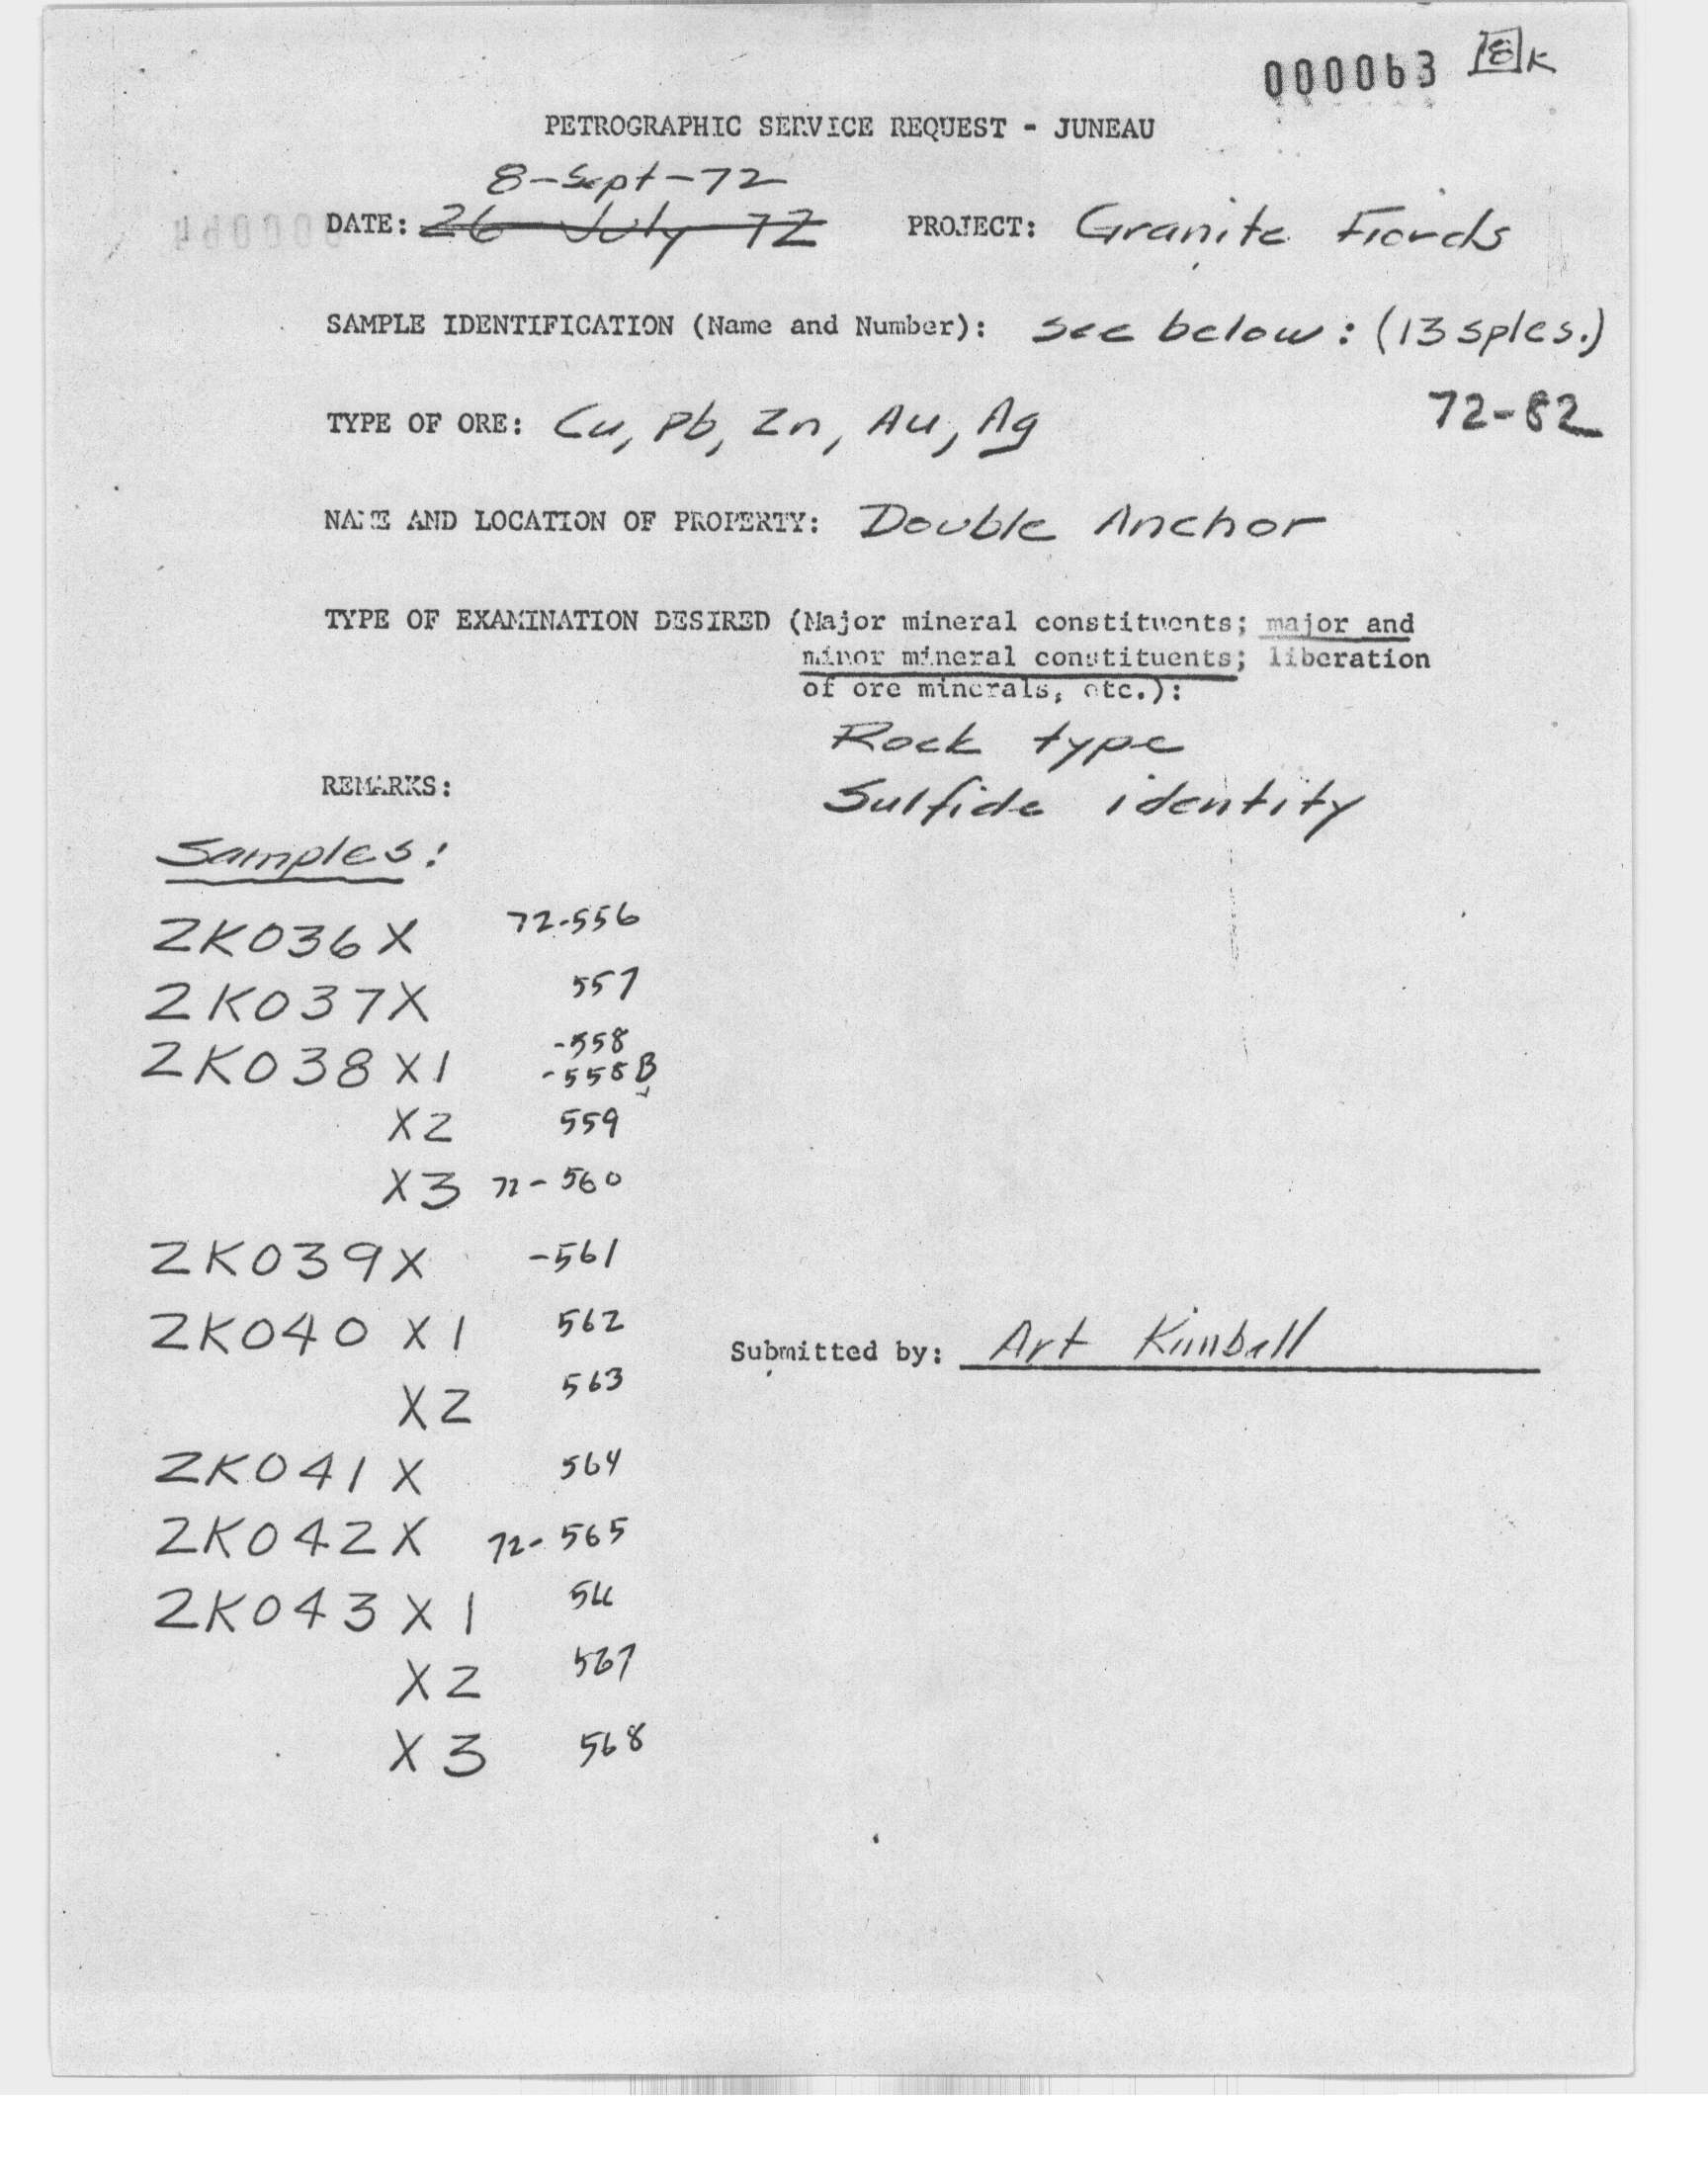 000063 [8] K
PETROGRAPHIC SERVICE REQUEST - JUNEAU
8-Sept-72
DATE: 26 July 72 PROJECT: Granite Fiords
SAMPLE IDENTIFICATION (Name and Number): see below: (13 sples.)
72-82
TYPE OF ORE: Cu, Pb, Zn, Au, Ag
NAME AND LOCATION OF PROPERTY: Double Anchor
TYPE OF EXAMINATION DESIRED (Major mineral constituents; major and
minor mineral constituents; liberation
of ore minerals, etc.):
Rock type
Sulfide identity
REMARKS:
Samples:
2K036X 72-556
2K037X 557
-558
2K038X1 -558B
X2 559
X3 72-560
2K039X -561
2K040 X1 562
X2 563
2K041X 564
2K042X 72-565
2K043X1 566
X2 567
X3 568
Submitted by: Art Kimball